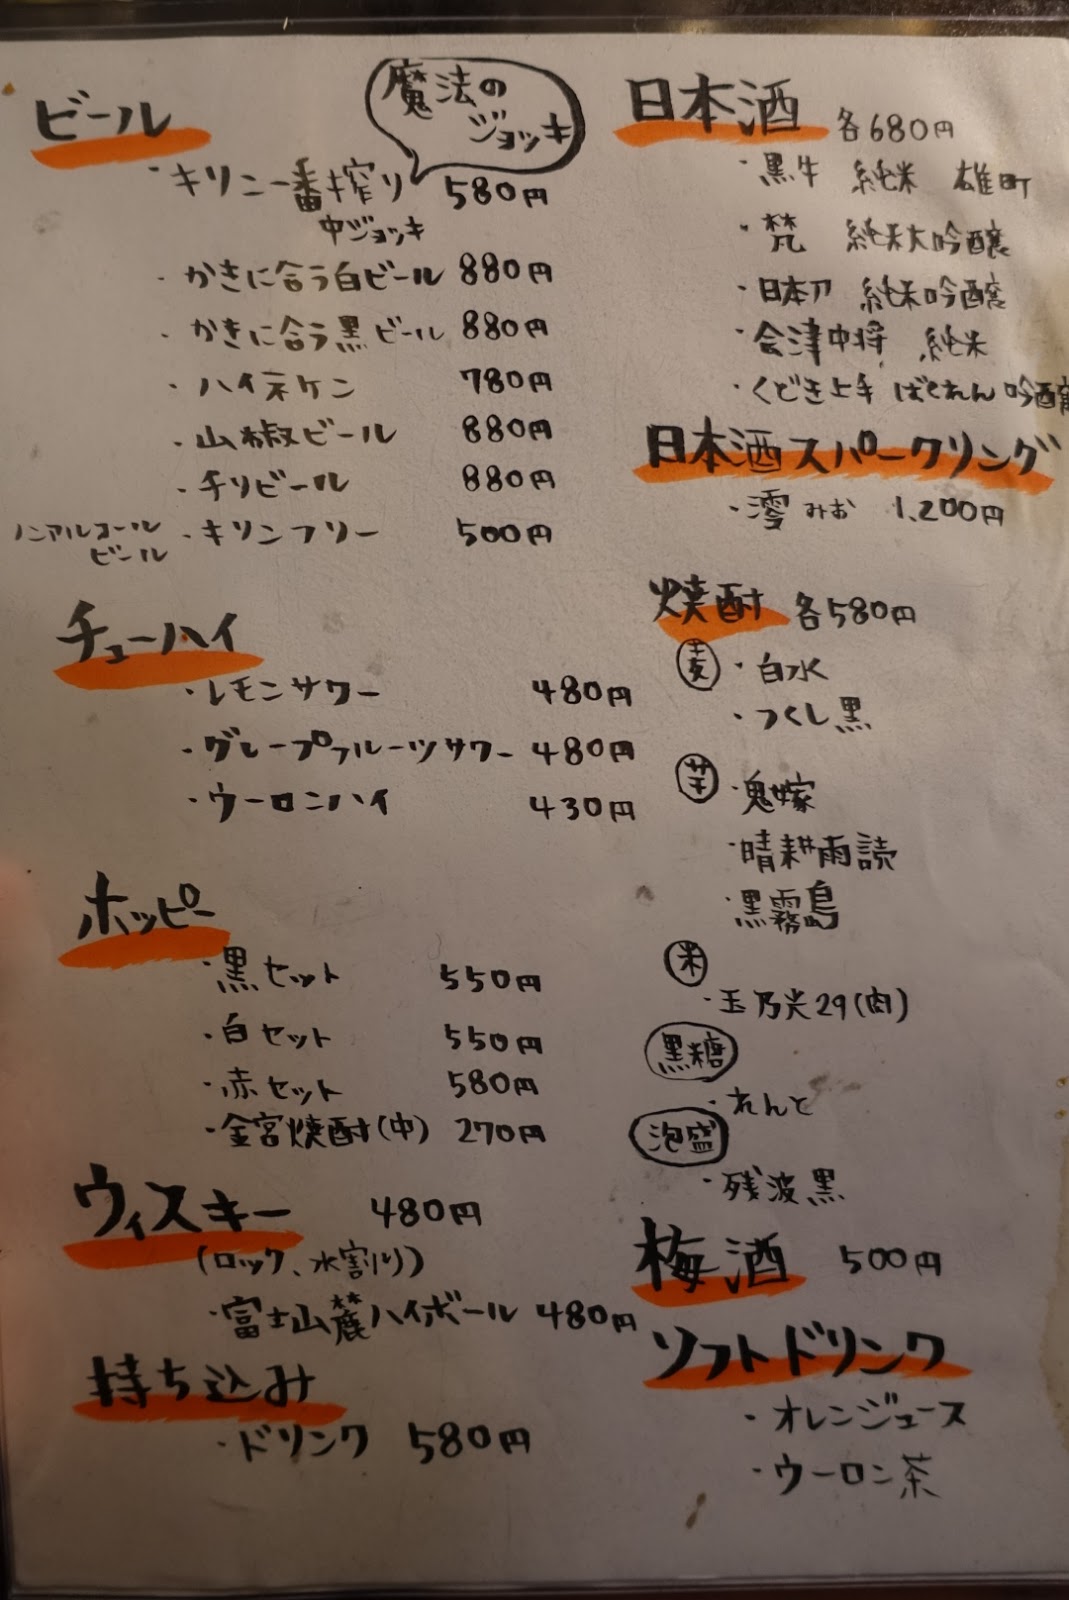 ビール
魔法の
ジョッキ
・キリン一番搾り 580円
中ジョッキ
・かきに合う白ビール 880円
・かきに合う黒ビール 880円
・ハイネケン 780円
・山椒ビール 880円
・チリビール 880円
ノンアルコール
ビール
・キリンフリー 500円
チューハイ
・レモンサワー 480円
・グレープフルーツサワー 480円
・ウーロンハイ 430円
ホッピー
・黒セット 550円
・白セット 550円
・赤セット 580円
・金宮焼酎(中) 270円
ウィスキー 480円
(ロック、水割り)
・富士山麓ハイボール 480円
持ち込み
・ドリンク 580円
日本酒 各680円
・黒牛 純米 雄町
・梵 純米大吟醸
・日本刀 純米吟醸
・会津中将 純米
・くどき上手 ばくれん 吟醸
日本酒スパークリング
・澪 みお 1.200円
焼酎 各580円
麦 ・白水
・つくし黒
芋 ・鬼嫁
・晴耕雨読
・黒霧島
米
・玉乃光29(肉)
黒糖
・れんと
泡盛
・残波黒
梅酒 500円
ソフトドリンク
・オレンジュース
・ウーロン茶